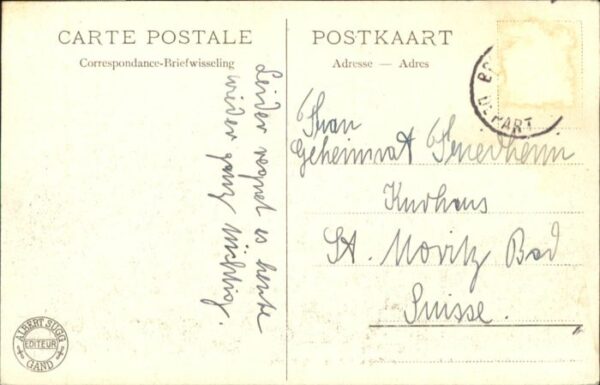 CARTE POSTALE
Correspondance-Briefwisseling
POSTKAART
Adresse — Adres
DEPART
Leider regnet es heute
wieder ganz tüchtig.
Frau
Geheimrat
Kurhaus
St. Moritz Bad
Suisse.
ALBERT SUGG
EDITEUR
GAND